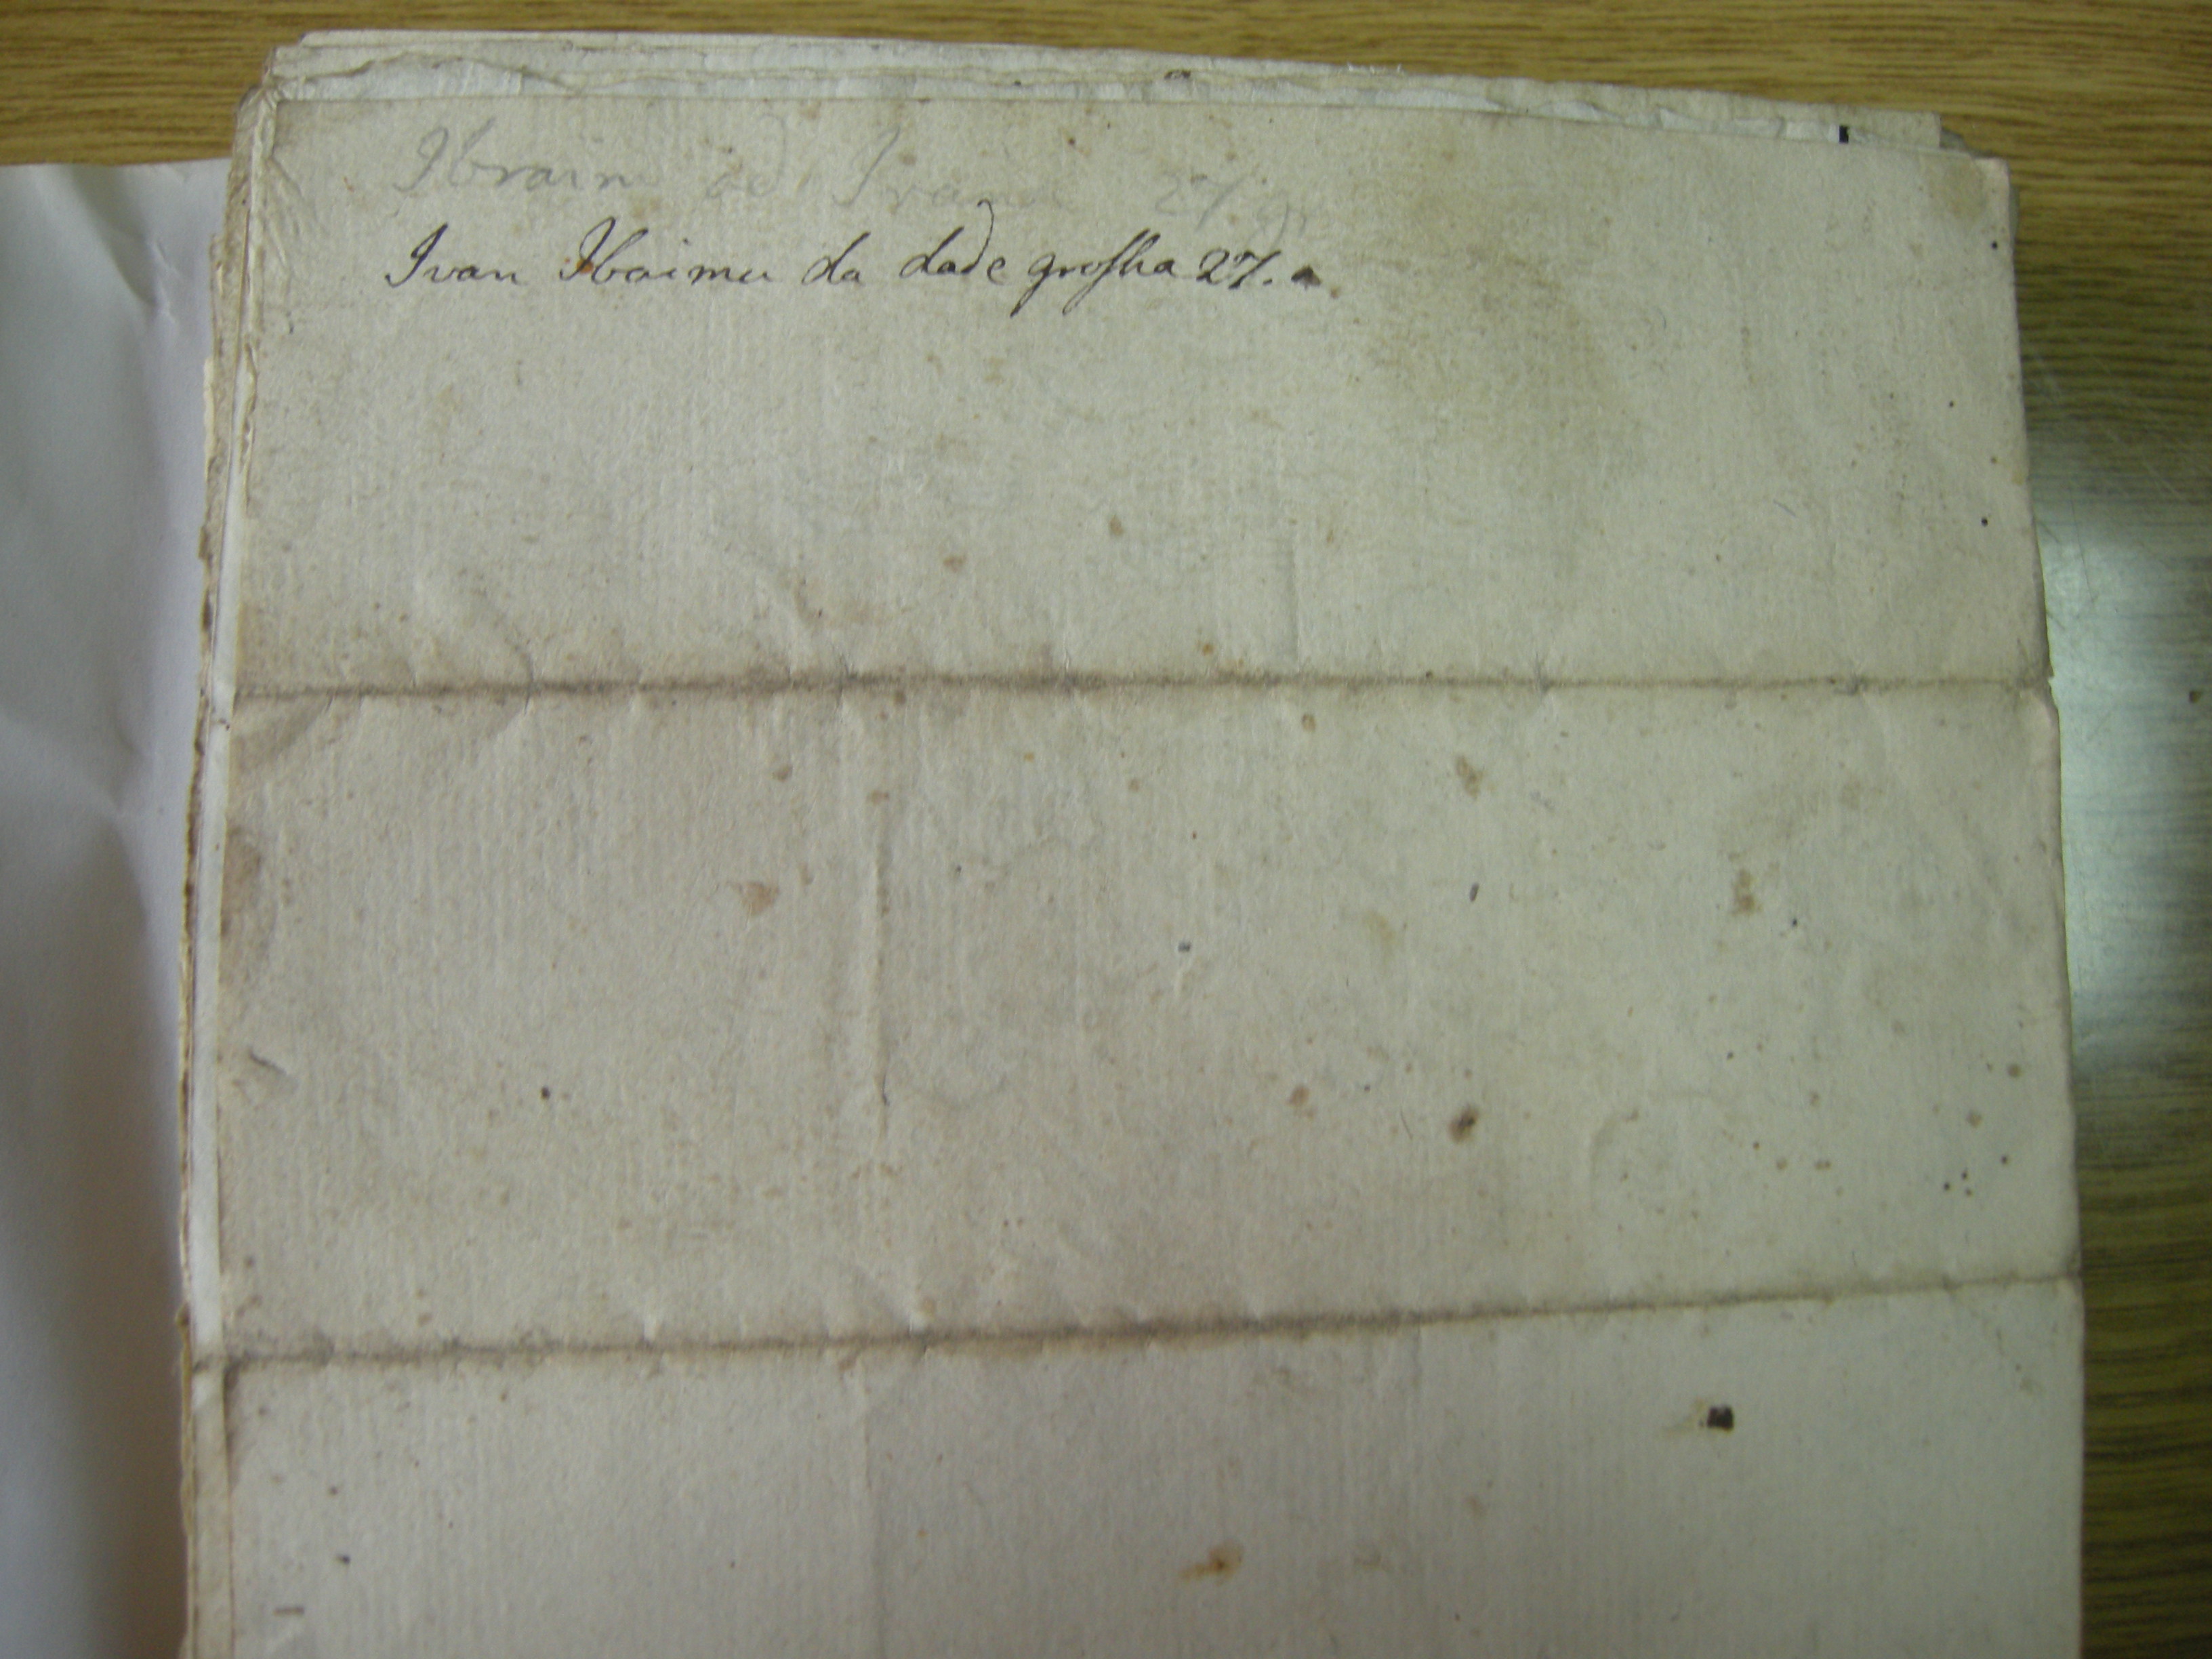 Ibraim od Ivana 27 gr
Ivan Ibaimu da dade grosha 27. a